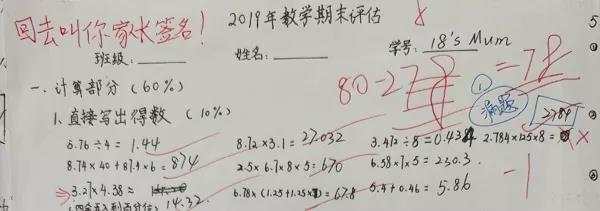 回去叫你家长签名!
2019年教学期末评估
班级:
姓名:
学号: 18's Mum
80-2
=78
一、计算部分 (60%)
①
漏题
2784
1. 直接写出得数 (10%)
5.76÷4= 1.44
8.72×3.1= 27.032
3.472÷8=0.434
2.784×125×8=
8.74×40+87.4×6= 874
2.5×6.7×8×5= 670
6.58×7×5= 230.3
3.27×4.38≈
6.78×(1.25+1.25×)=67.8
5.4+0.46= 5.86
-1
14.32